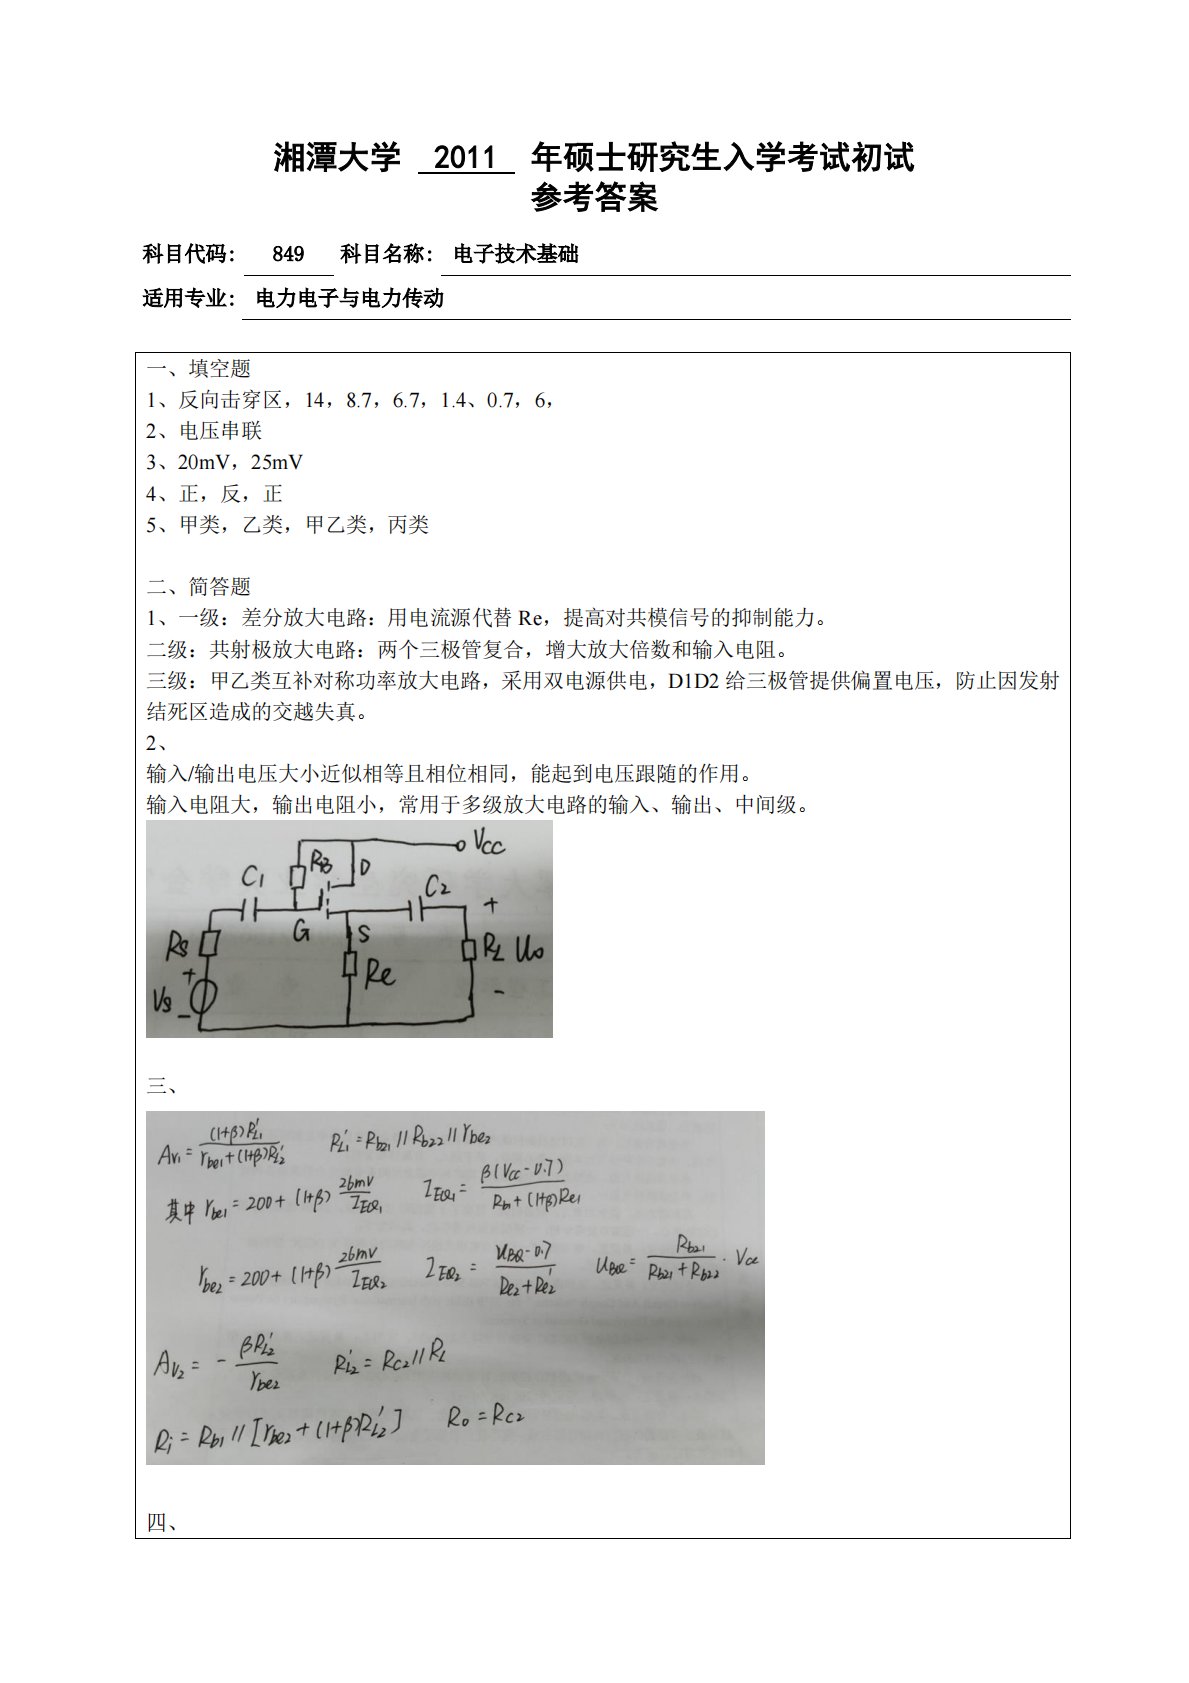 湘潭大学 2011 年硕士研究生入学考试初试
参考答案
科目代码： 849 科目名称： 电子技术基础
适用专业： 电力电子与电力传动
一、填空题
1、反向击穿区，14，8.7，6.7，1.4、0.7，6，
2、电压串联
3、20mV，25mV
4、正，反，正
5、甲类，乙类，甲乙类，丙类
二、简答题
1、一级：差分放大电路：用电流源代替 Re，提高对共模信号的抑制能力。
二级：共射极放大电路：两个三极管复合，增大放大倍数和输入电阻。
三级：甲乙类互补对称功率放大电路，采用双电源供电，D1D2 给三极管提供偏置电压，防止因发射
结死区造成的交越失真。
2、
输入/输出电压大小近似相等且相位相同，能起到电压跟随的作用。
输入电阻大，输出电阻小，常用于多级放大电路的输入、输出、中间级。
Vcc
RB D
C1 C2
+
G S
Rs RL Uo
+ Re
Vs
- -
三、
Av1 = (1+β)RL1' / (rbe1 + (1+β)RL2') RL1' = Rb21 // Rb22 // rbe2
其中 rbe1 = 200 + (1+β) 26mV / IEQ1 IEQ1 = β(Vcc-0.7) / (Rb1 + (1+β)Re1)
rbe2 = 200 + (1+β) 26mV / IEQ2 IEQ2 = (UBQ-0.7) / (Re2 + Re2') UBQ = Rb21 / (Rb21 + Rb22) · Vcc
Av2 = - βRL2' / rbe2 RL2' = Rc2 // RL
Ri = Rb1 // [rbe2 + (1+β)RL2'] Ro = Rc2
四、